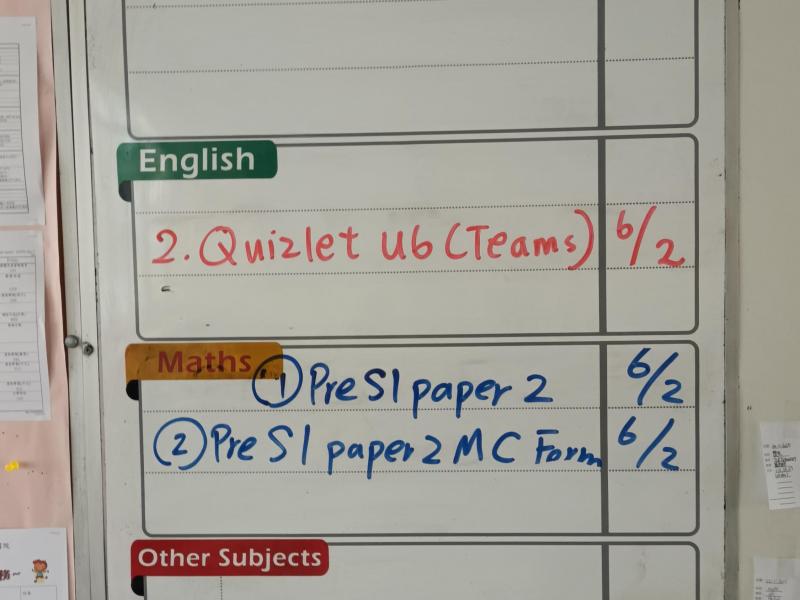 English
2. Quizlet U6 (Teams) 6/2
Maths
① Pre S1 paper 2 6/2
② Pre S1 paper 2 MC Form 6/2
Other Subjects
務